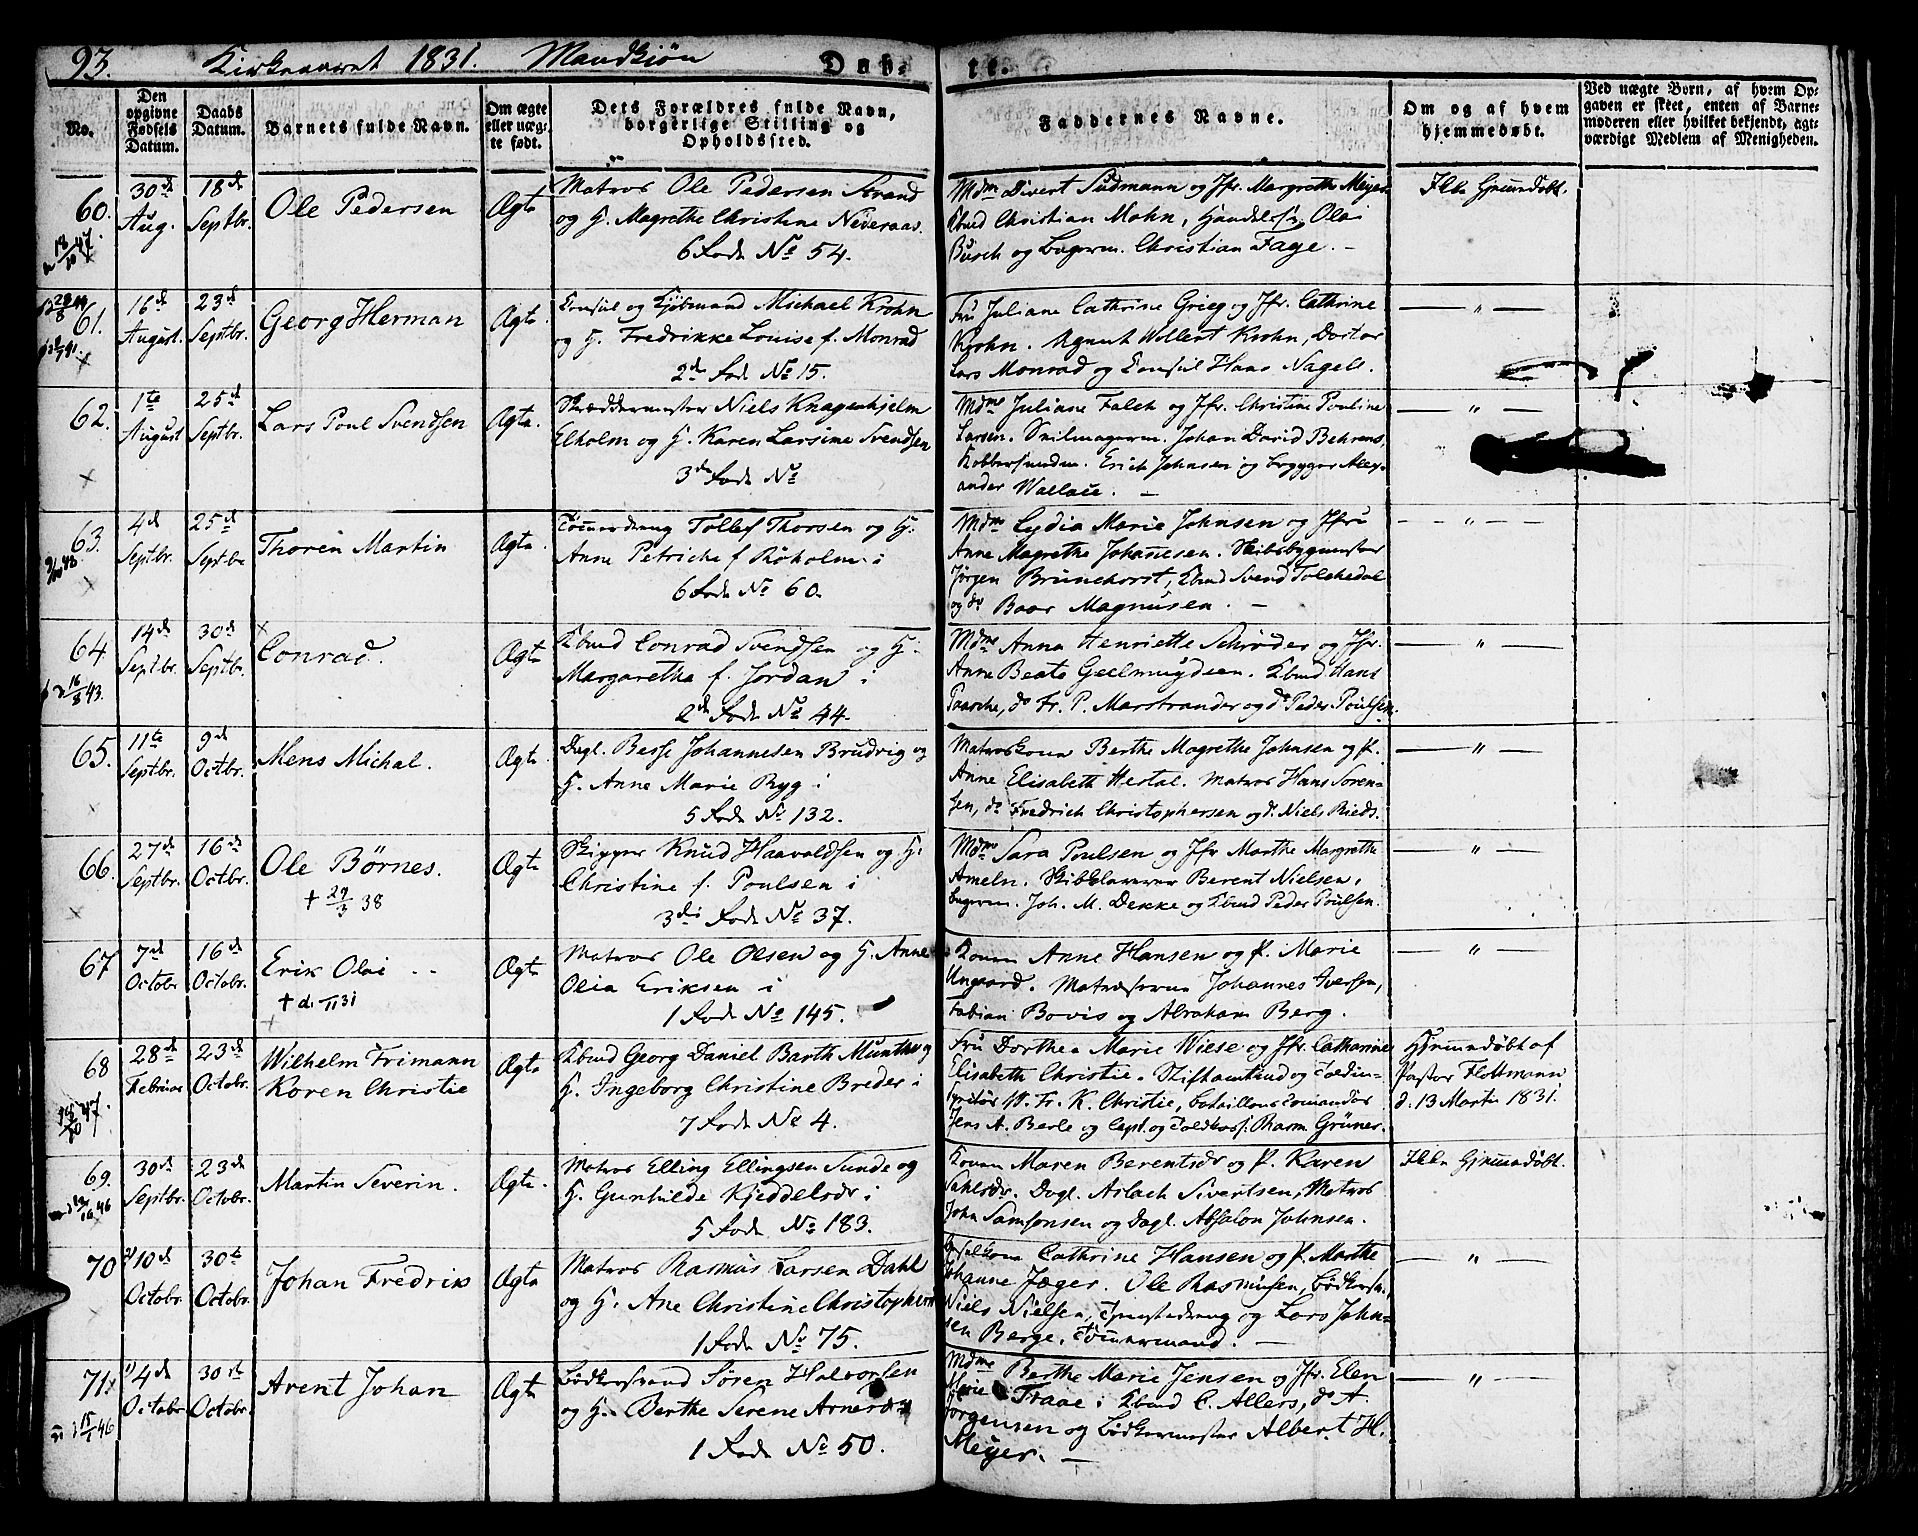 93. Kirkeaaret 1831. Mandkiøn Døb- te.
No.
Den opgivne Fødsels Datum.
Daabs Datum.
Barnets fulde Navn.
Om ægte eller uægte født.
Dets Forældres fulde Navn, borgerlige Stilling og Opholdssted.
Faddernes Navne.
Om og af hvem hjemmedøbt.
Ved uægte Børn, af hvem Opgaven er skeet, enten af Barnemoderen eller hvilket bekjendt, agtværdigt Medlem af Menigheden.
60. 30d Aug. 18d Septbr. Ole Pedersen Ægte
Matros Ole Pedersen Strand
og H. Magrethe Christine Nideraas.
6 Rode No 54.
Mdm Divert Sudmann og Jfr. Margrethe Meyer
Kbmd Christian Mohn, Handelsf. Olai
Busch og Bagerm. Christian Fage. –
Ikke Hjemmedøbt.
61. 16d August. 23d Septbr. Georg Herman Ægte
Consul og Kjøbmand Michael Krohn
og H. Fredrikke Louise f. Monrad
2d Rode No 15.
Fru Juliane Cathrine Grieg og Jfr. Cathrine
Krohn. Agent Wollert Krohn, Doctor
Lars Monrad og Consul Hans Nagell.
— „ —
62. 1te August 25d Septbr. Lars Poul Svendsen Ægte.
Skræddermester Niels Knagenhjelm
Elholm og H. Karen Larsine Svendsen
3de Rode No
Mdme Juliane Falch og Jfr. Christine Pouline
Larsen. Seilmagerm. Johan David Behrens,
Kobbersmedm. Erich Johnsen og Brygger Alex-
ander Wallace. –
— „ —
63. 4d Septbr. 25d Septbr Thorin Martin Ægte.
9/10 48
Tømredreng Tollef Thorsen og H.
Anne Petriche f Røholm i
6 Rode No 60.
Mdme Lydia Marie Johnsen og Jfru
Anne Magrethe Johannesen. Skibsbygmester
Jørgen Brunchorst, Kbmd Svend Tolchedal
og do Baar Magnusen. –
— „ —
64. 14d Septbr. 30d Septbr. Conrad. Ægte
16/8 43.
Kbmd Conrad Svendsen og H.
Margaretha f. Jordan i
2de Rode No 44.
Mdme Anna Henriette Schrøder og Jfr.
Anne Beate Geelmuyden. Kbmd Hans
Paasche, do Fr. P. Marstrander og do Peder Poulsen.
„ —
65. 11te Septbr. 9d Octbr. Mens Michal. Ægte
Dagl. Besse Johannesen Brudvig og
H. Anne Marie Ryg i
5 Rode No 132.
Matroskone Berthe Magrethe Johnsen og P.
Anne Elisabeth Hestal. Matros Hans Soren-
sen, do Fredrich Christophersen og do Niels Rieds.
— „ —
66. 27d Septbr. 16de Octbr. Ole Børnes. Ægte
+ 29/3 38
Skipper Knud Haavoldsen og H.
Christine f. Poulsen i
3di Rode No 37.
Mdme Sara Poulsen og Jfr Marthe Margrethe
Ameln. Berent Nielsen,
Bagerm. Joh. M. Dekke og Kbmd Peder Poulsen.
„ —
67 7de Octobr 16d Octobr. Erik Olai Ægte
+ d. /11 31
Matros Ole Olsen og H. Anne
Olia Eriksen i
1 Rode No 145.
Konen Anne Hansen og P. Marie
Ungaard. Matroserne Johannes Iversen,
Fabian Bovis og Abraham Berg.
— „ —
68 28de Februar 23d Octobr. Wilhelm Frimann
Koren Christie Ægte
Kbmd Georg Daniel Barth Munthe og
H. Ingeborg Christine Breder i
7 Rode No 4.
Fru Dorthea Marie Wiese og Jfr. Catharine
Elisabeth Christie. Stiftamtmd og Toldin-
spektør W. Fr. K. Christie, Bataillons Comandør
Jens A. Berle og Capt. og Toldkass. Rasm Grüner.
Hjemmedøbt af
Pastor Flottmann
d. 13 Martii 1831.
69. 30d Septbr. 23d Octobr. Martin Severin. Ægte.
Matros Elling Ellingsen Sunde og
H. Gunhilde Kjeddelsdr i
5 Rode No 183.
Konen Maren Berentsdr og P. Karen
Sahlsdr. Dagl. Aslach Sivertsen, Matros
John Samsonsen og Dagl. Absalon Johnsen.
Ikke Hjemmedøbt.
70 10d Octobr. 30te Octobr. Johan Fredrik Ægte
Matros Rasmus Larsen Dahl
og H. Ane Christine Christophers
1 Rode No 75.
Cathrine Hansen og P. Marthe
Johanne Jæger. Ole Rasmusen, Bødkersv.
Niels Nielsen, og Lars John-
sen Berge, Tømmermand. –
— „
71. 4de Octobr 30te Octobr. Arent Johan Ægte
15/1 46
Bødkersvend Søren Halvorsen
og H. Berthe Serene Arnesdr
1 Rode No 50.
Mdme Berthe Marie Jensen og Jfr. Elen
Marie Traae i Kbmd C. Allers, do A.
Jørgensen og Bødkermester Albert H.
Meyer. –
— „ —